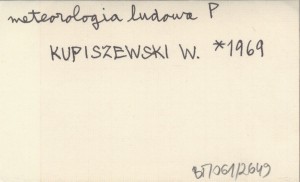 meteorologia ludowa P
KUPISZEWSKI W. *1969
BT/061/2649